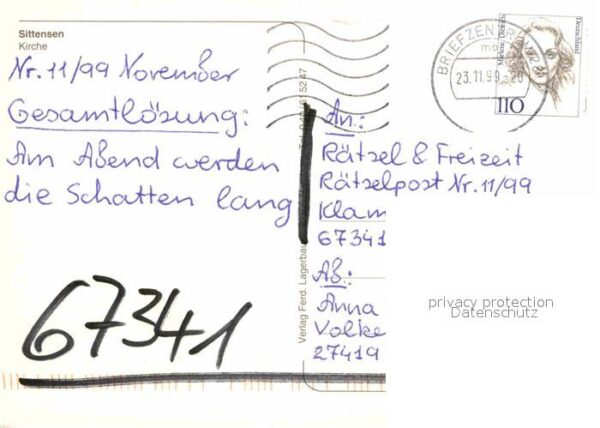 Sittensen
Kirche
Nr. 11/99 November
Gesamtlösung:
Am Abend werden
die Schatten lang
67341
Verlag Ferd. Lagerbau
61 52 47
BRIEFZENTRUM
23.11.99.-20
Marlene Dietrich
Deutschland
110
An:
Rätsel & Freizeit
Rätselpost Nr. 11/99
Klam
67341
Ab:
Anna
Volke
27419
privacy protection
Datenschutz